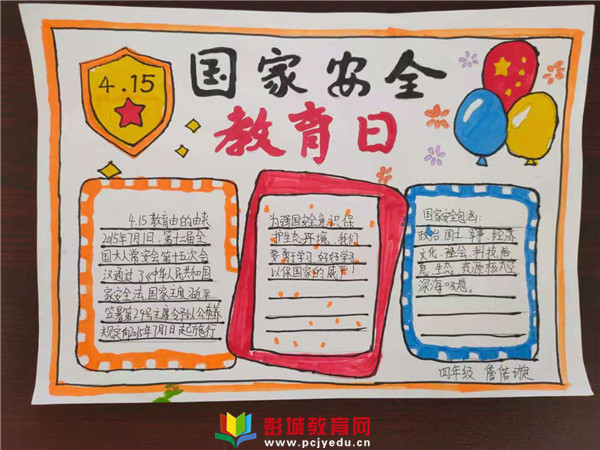 4.15
国家安全
教育日
4.15教育由的由来
2015年7月1日,第十二届全
国人大常安会第十五次会
议通过了《中华人民共和国
家安全法》国家主席习近平
签署第29号主席令予以公布
规定向2015年7月1日起施行
为强国安全意识,保
护生态环境,我们
要勇于学习 好好学习
以保国家的威严
国家安全包括:
政治.国土.军事.经济
文化.社会.科技.信
息.生态.资源核太空
深海
四年级 詹
璇
彭城教育网
www.pcjyedu.cn